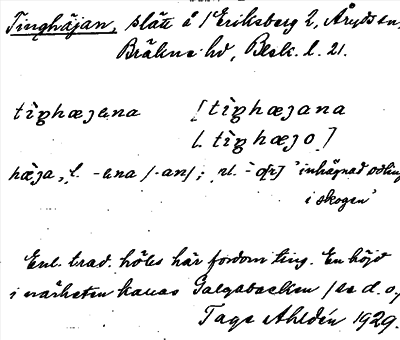 Tinghäjan, slätt å /Eriksberg 2, Åryds sn,
Bräkne hd, Blek. l. 21.
tìŋhæjana [tìŋhæjana
l. tìŋhæjo]
hæja, f. -ana /-an/; pl. 'inhägnad odling
i skogen'
Enl. trad. hölls här fordom ting. En höjd
i närheten kallas Galgabacken /se d. o./
Tage Ahldén 1929.